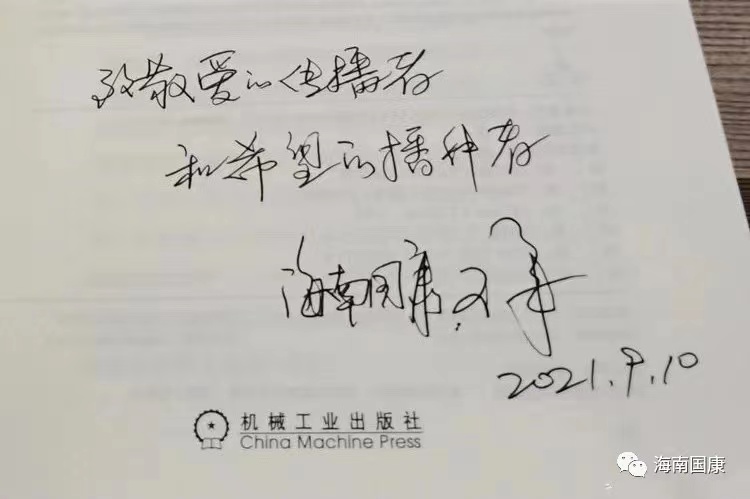 致敬爱的传播者
和希望的播种者
海南国康
2021.9.10
机械工业出版社
China Machine Press
海南国康